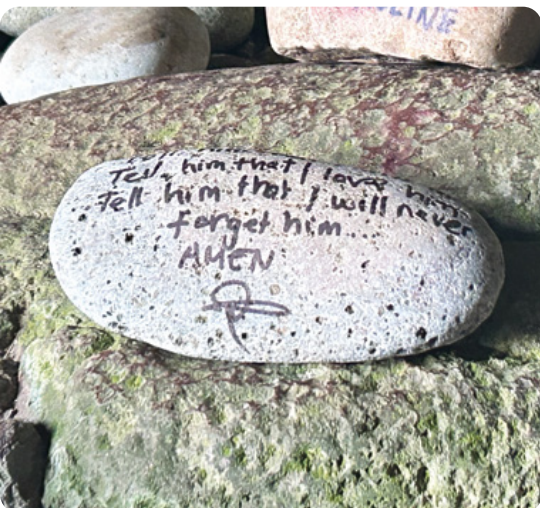 OLINE
Tell him that I love him
Tell him that I will never
forget him...
AMEN